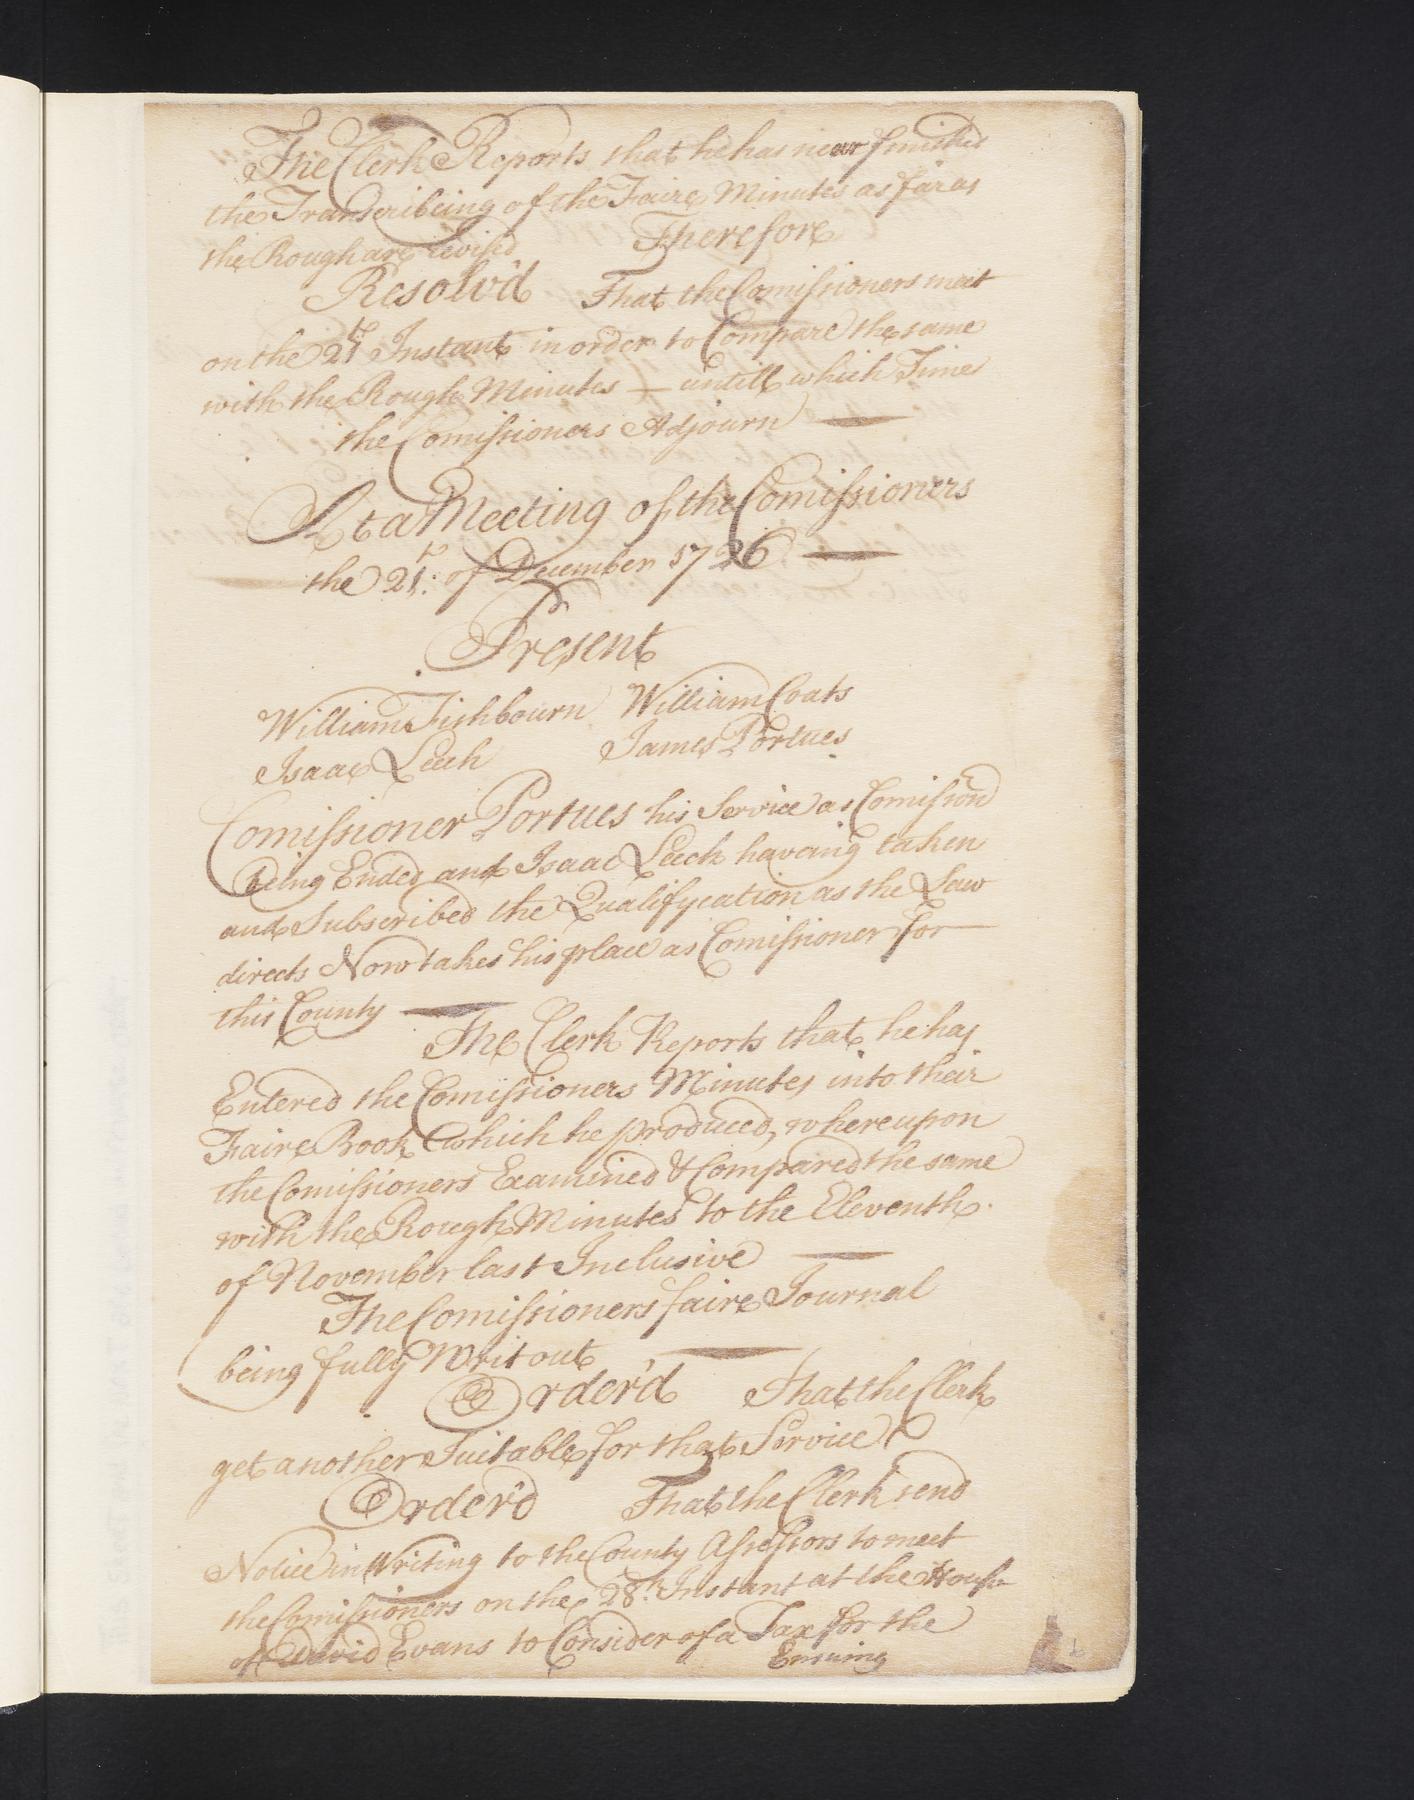 The Clerk Reports that he has near finished
the Transcribeing of the Faire Minutes as far as
the Rough are revised Therefore
Resolv'd That the Comissioners meet
on the 21th Instant in order to Compare the same
with the Rough Minutes — untill which Time
the Comissioners Adjourn —
At a Meeting of the Comissioners
the 21th: of December 1726 —
Present
William Fishbourn William Coats
Isaac Leech James Portues
Comissioner Portues his Service as Comission
being Ended and Isaac Leech haveing taken
and Subscribed the Qualifycation as the Law
directs Now takes his place as Comissioner for
this County —
The Clerk Reports that he has
Entered the Comissioners Minutes into their
Faire Book which he produced, whereupon
the Comissioners Examined & Compared the same
with the Rough Minutes to the Eleventh
of November last Inclusive —
The Comissioners faire Journal
being fully Writ out —
Order'd That the Clerk
get another Suitable for that Service
Order'd That the Clerk send
Notice in Writing to the County Assessors to meet
the Comissioners on the 28th: Instant at the House
of David Evans to Consider of a Tax for the
Ensuing